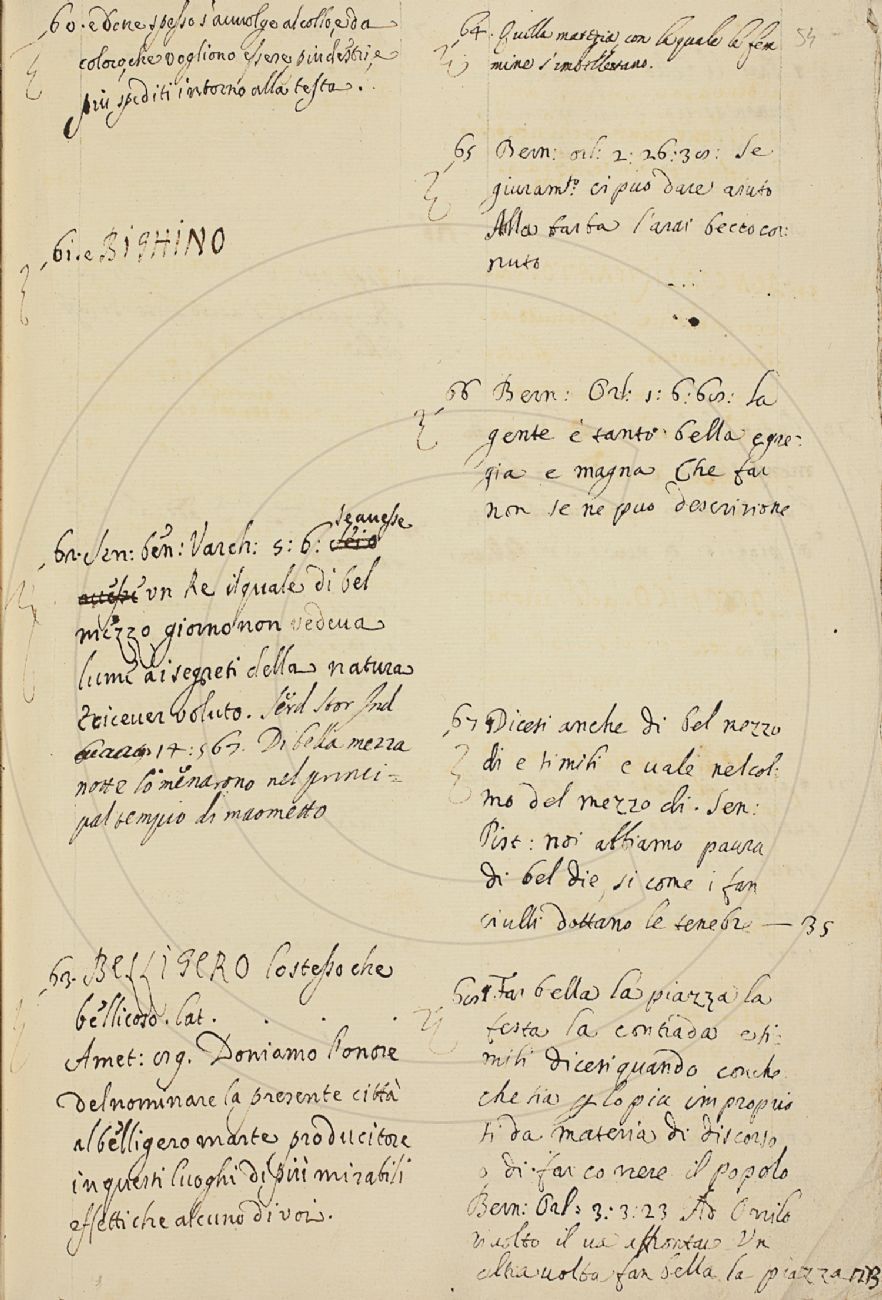 60. e done spesso s'auuolge al collo, e da
coloro, che vogliono essere piu destri, e
più spediti intorno alla testa.
61. e BIGHINO
62. Sen: ben: Varch: 5: 6: se auesse
vn Re il quale di bel
mezzo giorno non vedeua
lume ai segreti della natura
riceuer voluto. Serd Stor Ind
14: 567. Di bella mezza
notte lo menarono nel princi=
pal tempio di maometto
63. BELLIGERO lo stesso che
bellicoso. lat. . . .
Amet: 019. Doniamo l'onore
del nominare la presente città
al belligero marte producitore
in questi luoghi di più mirabili
effetti che alcuno di voi.
54
64. Quilla materia con la quale le fem
mine s'imbellettano.
65 Bern: orl: 2: 26: 30: Se
giuramto ci puo dare aiuto
Alla farfa l'arai becco cor:
nuto
66 Bern: Orl: 1: 6: 60: la
gente è tanto bella egre:
gia e magna Che far
non se ne puo descrizione
67 Dicesi anche di bel mezzo
di e simili e uale nel col:
mo del mezzo di. Sen:
Pist: noi abbiamo paura
di bel die, si come i fan
ciulli dottano le tenebre — 35
68. Far bella la piazza la
festa la contrada e si:
mili dicesi quando conche
che sia p lo piu improprio
si da materia di discorso
o di far correre il popolo
Bern: Orl: 3: 3: 23 Ad Orrilo
riuolto il ua affrontar Vn
altra uolta fan bella la piazza